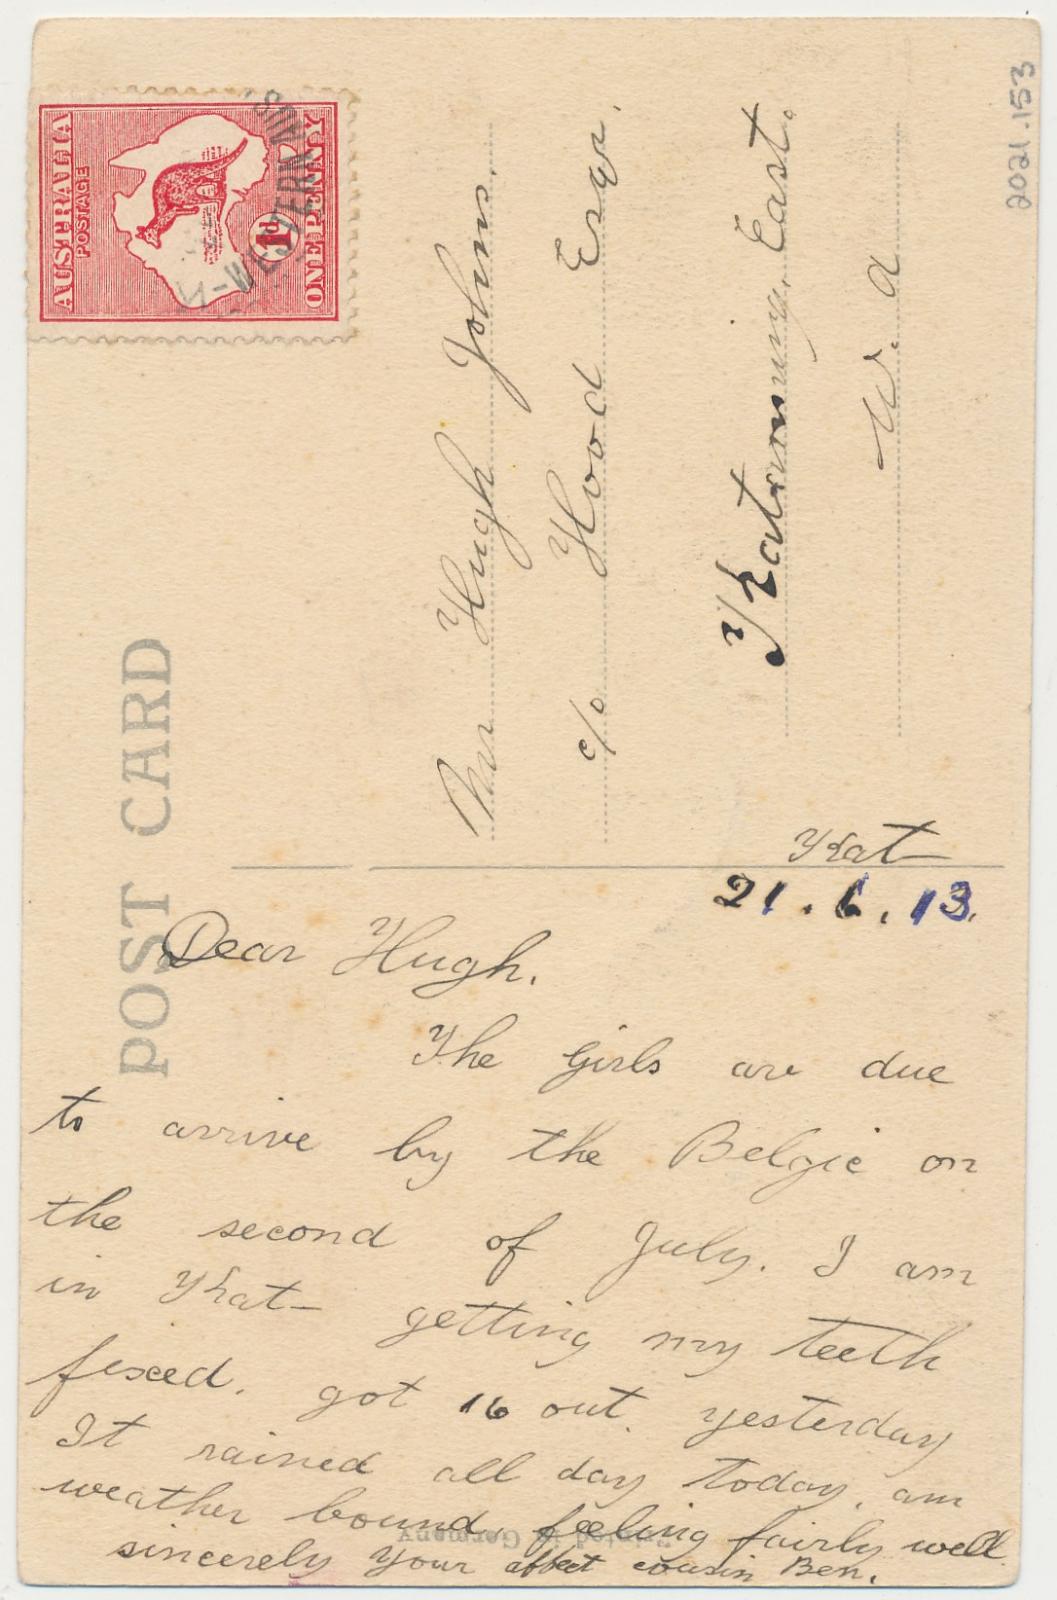 2021.153
AUSTRALIA
POSTAGE
1d
ONE PENNY
N-WESTERN AUS
POST CARD
Mr Hugh Johns.
c/o Hood Esqr.
Katanning. East.
W. A
Kat
21.6.13.
Dear Hugh.
The Girls are due
to arrive by the Belgic on
the second of July. I am
in Kat getting my teeth
fixed. got 16 out yesterday
It rained all day today. am
weather bound. feeling fairly well
sincerely your affect cousin Ben.
Printed in Germany